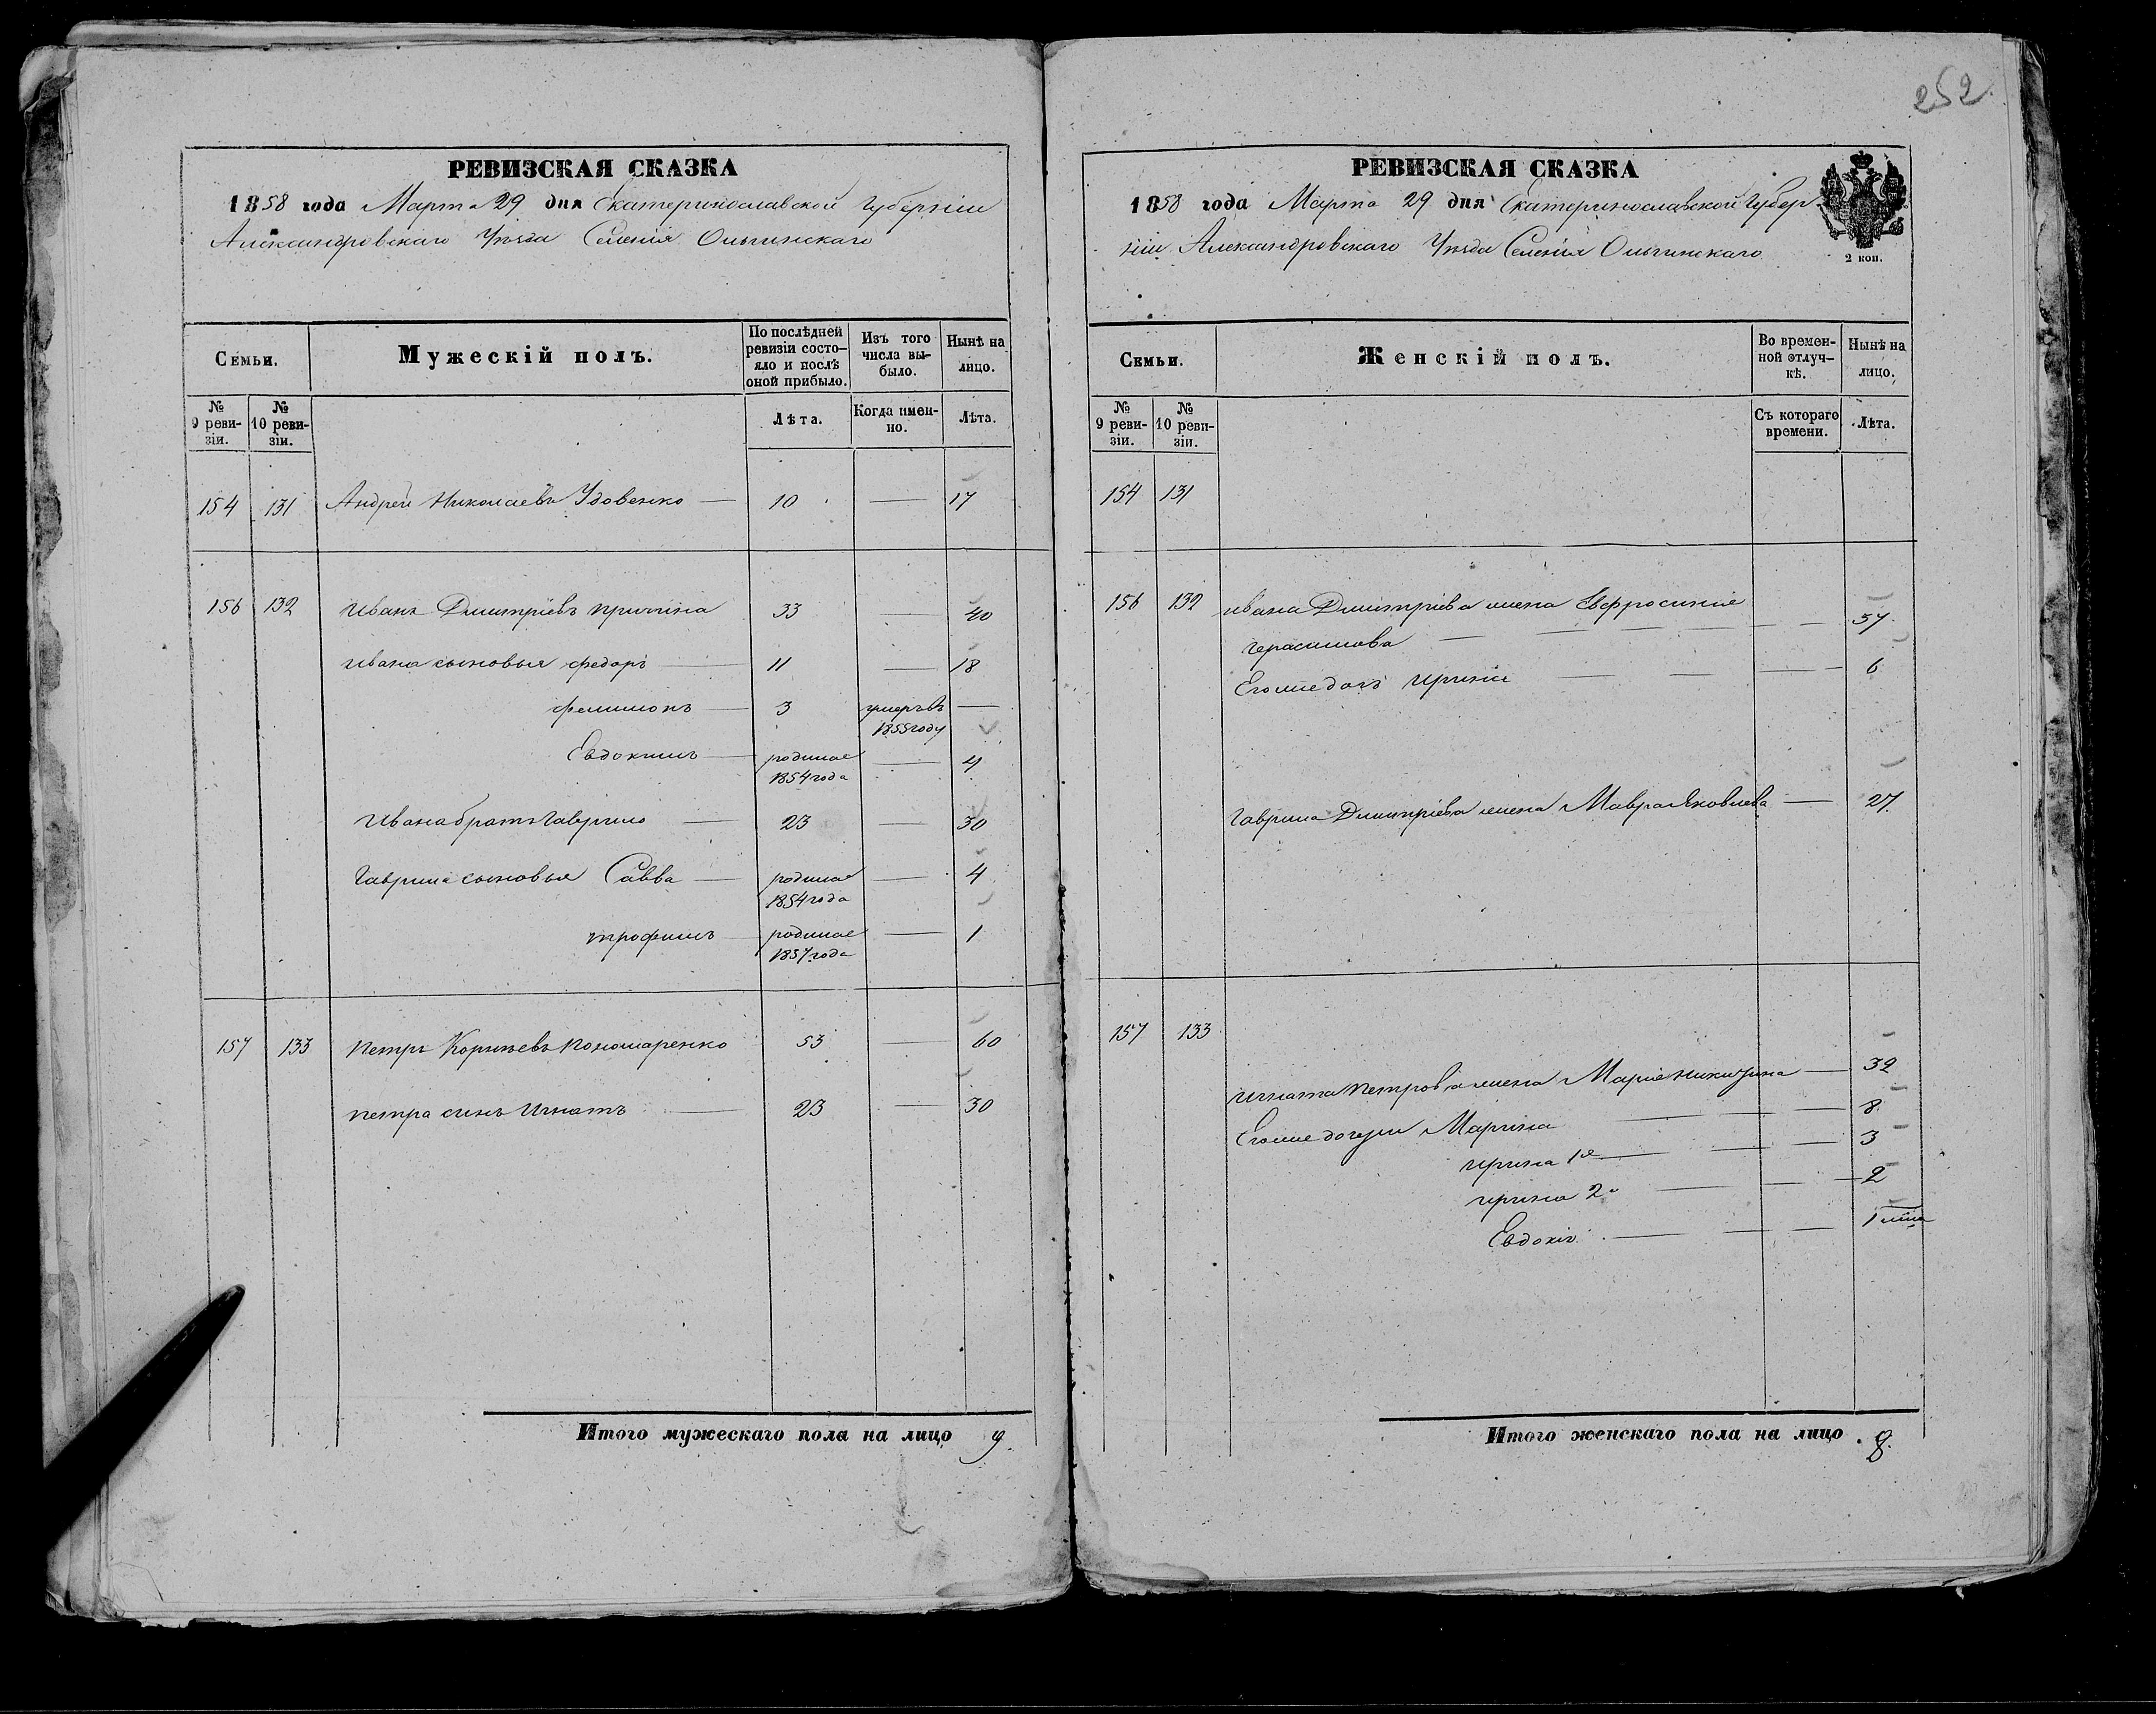 252.
РЕВИЗСКАЯ СКАЗКА
1858 года Марта 29 дня Екатеринославской Губерніи
Александровскаго Уѣзда Селенія Ольгинскаго
Семьи.
Мужескій полъ.
По послѣдней
ревизіи состо-
яло и послѣ
оной прибыло.
Изъ того
числа вы-
было.
Нынѣ на
лицо.
№
9 реви-
зіи.
№
10 реви-
зіи.
Лѣта.
Когда имен-
но.
Лѣта.
154 131 Андрей Николаевъ Удовенко — 10 — 17
156 132 Иванъ Дмитріевъ Притпина 33 — 40
Ивана сыновья Федоръ — 11 — 18
Филимонъ — 3 умеръ въ —
1855 году
Евдокимъ — родился — 4
1854 года
Ивана братъ Гаврило — 23 — 30
Гаврила сыновья Савва — родился — 4
1854 года
Трофимъ — родился — 1
1857 года
157 133 Петръ Корнѣевъ Пономаренко 53 — 60
Петра сынъ Игнатъ — 23 — 30
Итого мужескаго пола на лицо 9.
РЕВИЗСКАЯ СКАЗКА
1858 года Марта 29 дня Екатеринославской Губер
ніи Александровскаго Уѣзда Селенія Ольгинскаго
2 коп.
Семьи.
Женскій полъ.
Во времен-
ной отлуч-
кѣ.
Нынѣ на
лицо.
№
9 реви-
зіи.
№
10 реви-
зіи.
Съ котораго
времени.
Лѣта.
154 131
156 132 Ивана Дмитріева жена Евфросинія
Герасимова — — — — — — 37
Егоже дочь Ирина — — — 6
Гаврила Дмитріева жена Мавра Яковлева — 27
157 133
Игната Петрова жена Марія Никитина — 32
Егоже дочери Марина — — — 8
Ирина 1я — — — 3
Ирина 2я — — — 2
Евдокія — — — 1 м̃ца
Итого женскаго пола на лицо 8.